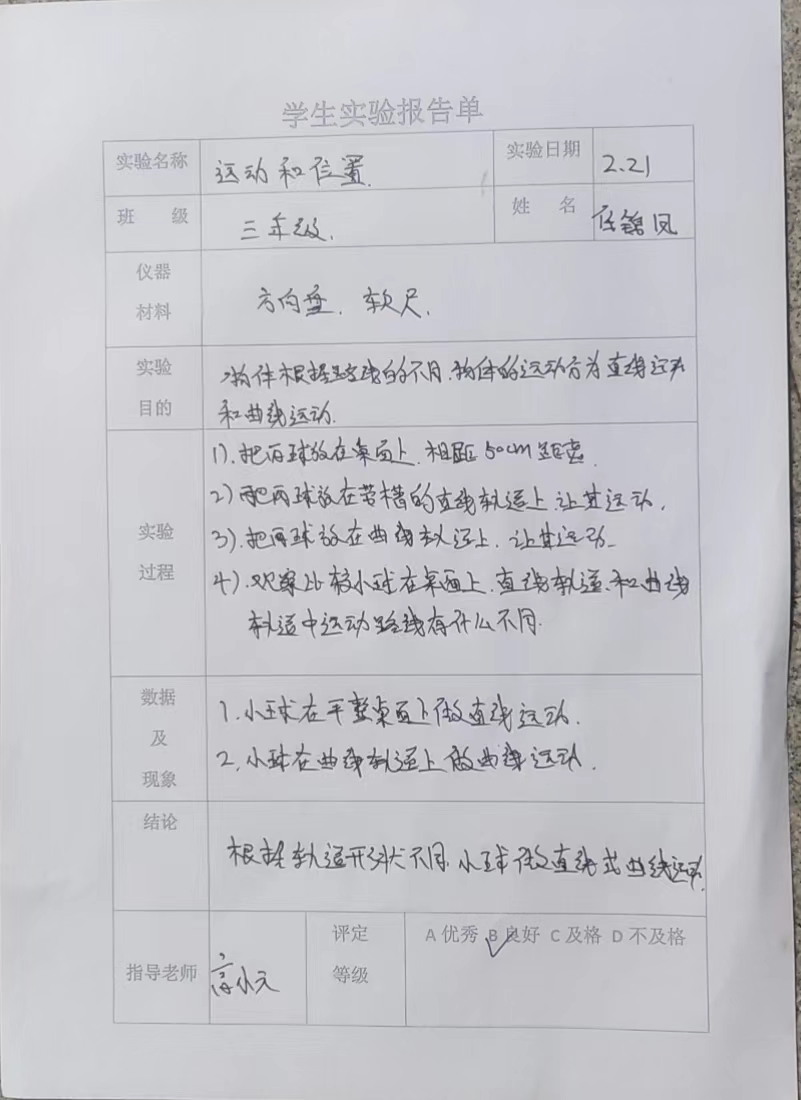 学生实验报告单
实验名称 运动和位置. 实验日期 2.21
班 级 三年级. 姓 名 任锦凤
仪器
材料
方向盘. 软尺.
实验
目的
物体根据路线的不同.物体的运动方为直线运动
和曲线运动.
实验
过程
1).把两球放在桌面上.相距50cm距离.
2)把两球放在带槽的直线轨道上.让其运动.
3).把两球放在曲线轨道上.让其运动.
4).观察比较小球在桌面上.直线轨道.和曲线
轨道中运动路线有什么不同.
数据
及
现象
1.小球在平整桌面上做直线运动.
2.小球在曲线轨道上做曲线运动.
结论
根据轨道形状不同.小球做直线或曲线运动.
指导老师 小元
评定
等级
A 优秀 B 良好 C 及格 D 不及格